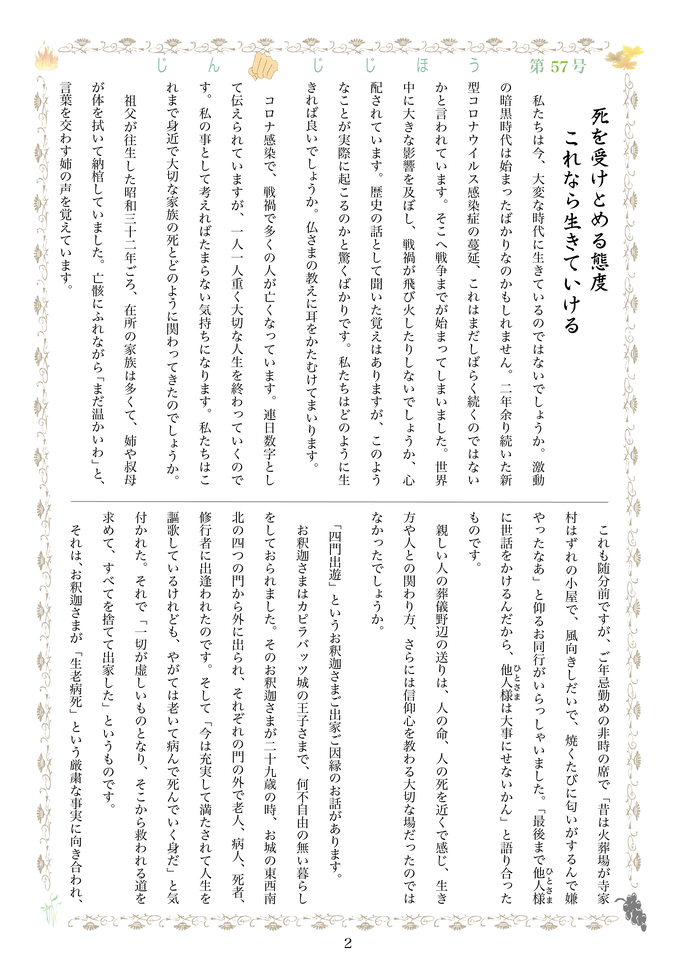 じん じじほう 第57号
死を受けとめる態度
これなら生きていける
私たちは今、大変な時代に生きているのではないでしょうか。激動
の暗黒時代は始まったばかりなのかもしれません。二年余り続いた新
型コロナウイルス感染症の蔓延、これはまだしばらく続くのではない
かと言われています。そこへ戦争までが始まってしまいました。世界
中に大きな影響を及ぼし、戦禍が飛び火したりしないでしょうか、心
配されています。歴史の話として聞いた覚えはありますが、このよう
なことが実際に起こるのかと驚くばかりです。私たちはどのように生
きれば良いでしょうか。仏さまの教えに耳をかたむけてまいります。
コロナ感染で、戦禍で多くの人が亡くなっています。連日数字とし
て伝えられていますが、一人一人重く大切な人生を終わっていくので
す。私の事として考えればたまらない気持ちになります。私たちはこ
れまで身近で大切な家族の死とどのように関わってきたのでしょうか。
祖父が往生した昭和三十二年ごろ、在所の家族は多くて、姉や叔母
が体を拭いて納棺していました。亡骸にふれながら「まだ温かいわ」と、
言葉を交わす姉の声を覚えています。
これも随分前ですが、ご年忌勤めの非時の席で「昔は火葬場が寺家
村はずれの小屋で、風向きしだいで、焼くたびに匂いがするんで嫌
やったなあ」と仰るお同行がいらっしゃいました。「最後まで他人様
ひとさま
に世話をかけるんだから、他人様は大事にせないかん」と語り合った
ひとさま
ものです。
親しい人の葬儀野辺の送りは、人の命、人の死を近くで感じ、生き
方や人との関わり方、さらには信仰心を教わる大切な場だったのでは
なかったでしょうか。
「四門出遊」というお釈迦さまご出家ご因縁のお話があります。
お釈迦さまはカピラバッツ城の王子さまで、何不自由の無い暮らし
をしておられました。そのお釈迦さまが二十九歳の時、お城の東西南
北の四つの門から外に出られ、それぞれの門の外で老人、病人、死者、
修行者に出逢われたのです。そして「今は充実して満たされて人生を
謳歌しているけれども、やがては老いて病んで死んでいく身だ」と気
付かれた。それで「一切が虚しいものとなり、そこから救われる道を
求めて、すべてを捨てて出家した」というものです。
それは、お釈迦さまが「生老病死」という厳粛な事実に向き合われ、
2